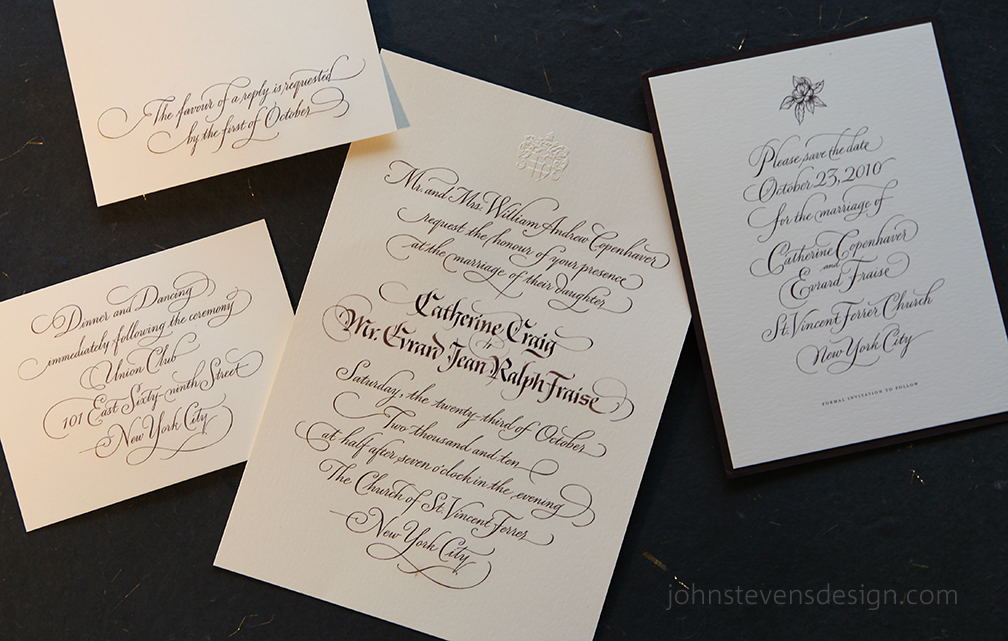 The favour of a reply is requested
by the first of October
Dinner and Dancing
immediately following the ceremony
Union Club
101 East Sixty-ninth Street
New York City
Mr. and Mrs. William Andrew Copenhaver
request the honour of your presence
at the marriage of their daughter
Catherine Craig
to
Mr. Evrard Jean Ralph Fraise
Saturday, the twenty-third of October
Two thousand and ten
at half after seven o'clock in the evening
The Church of St. Vincent Ferrer
New York City
Please save the date
October 23, 2010
for the marriage of
Catherine Copenhaver
and
Evrard Fraise
St. Vincent Ferrer Church
New York City
FORMAL INVITATION TO FOLLOW
johnstevensdesign.com